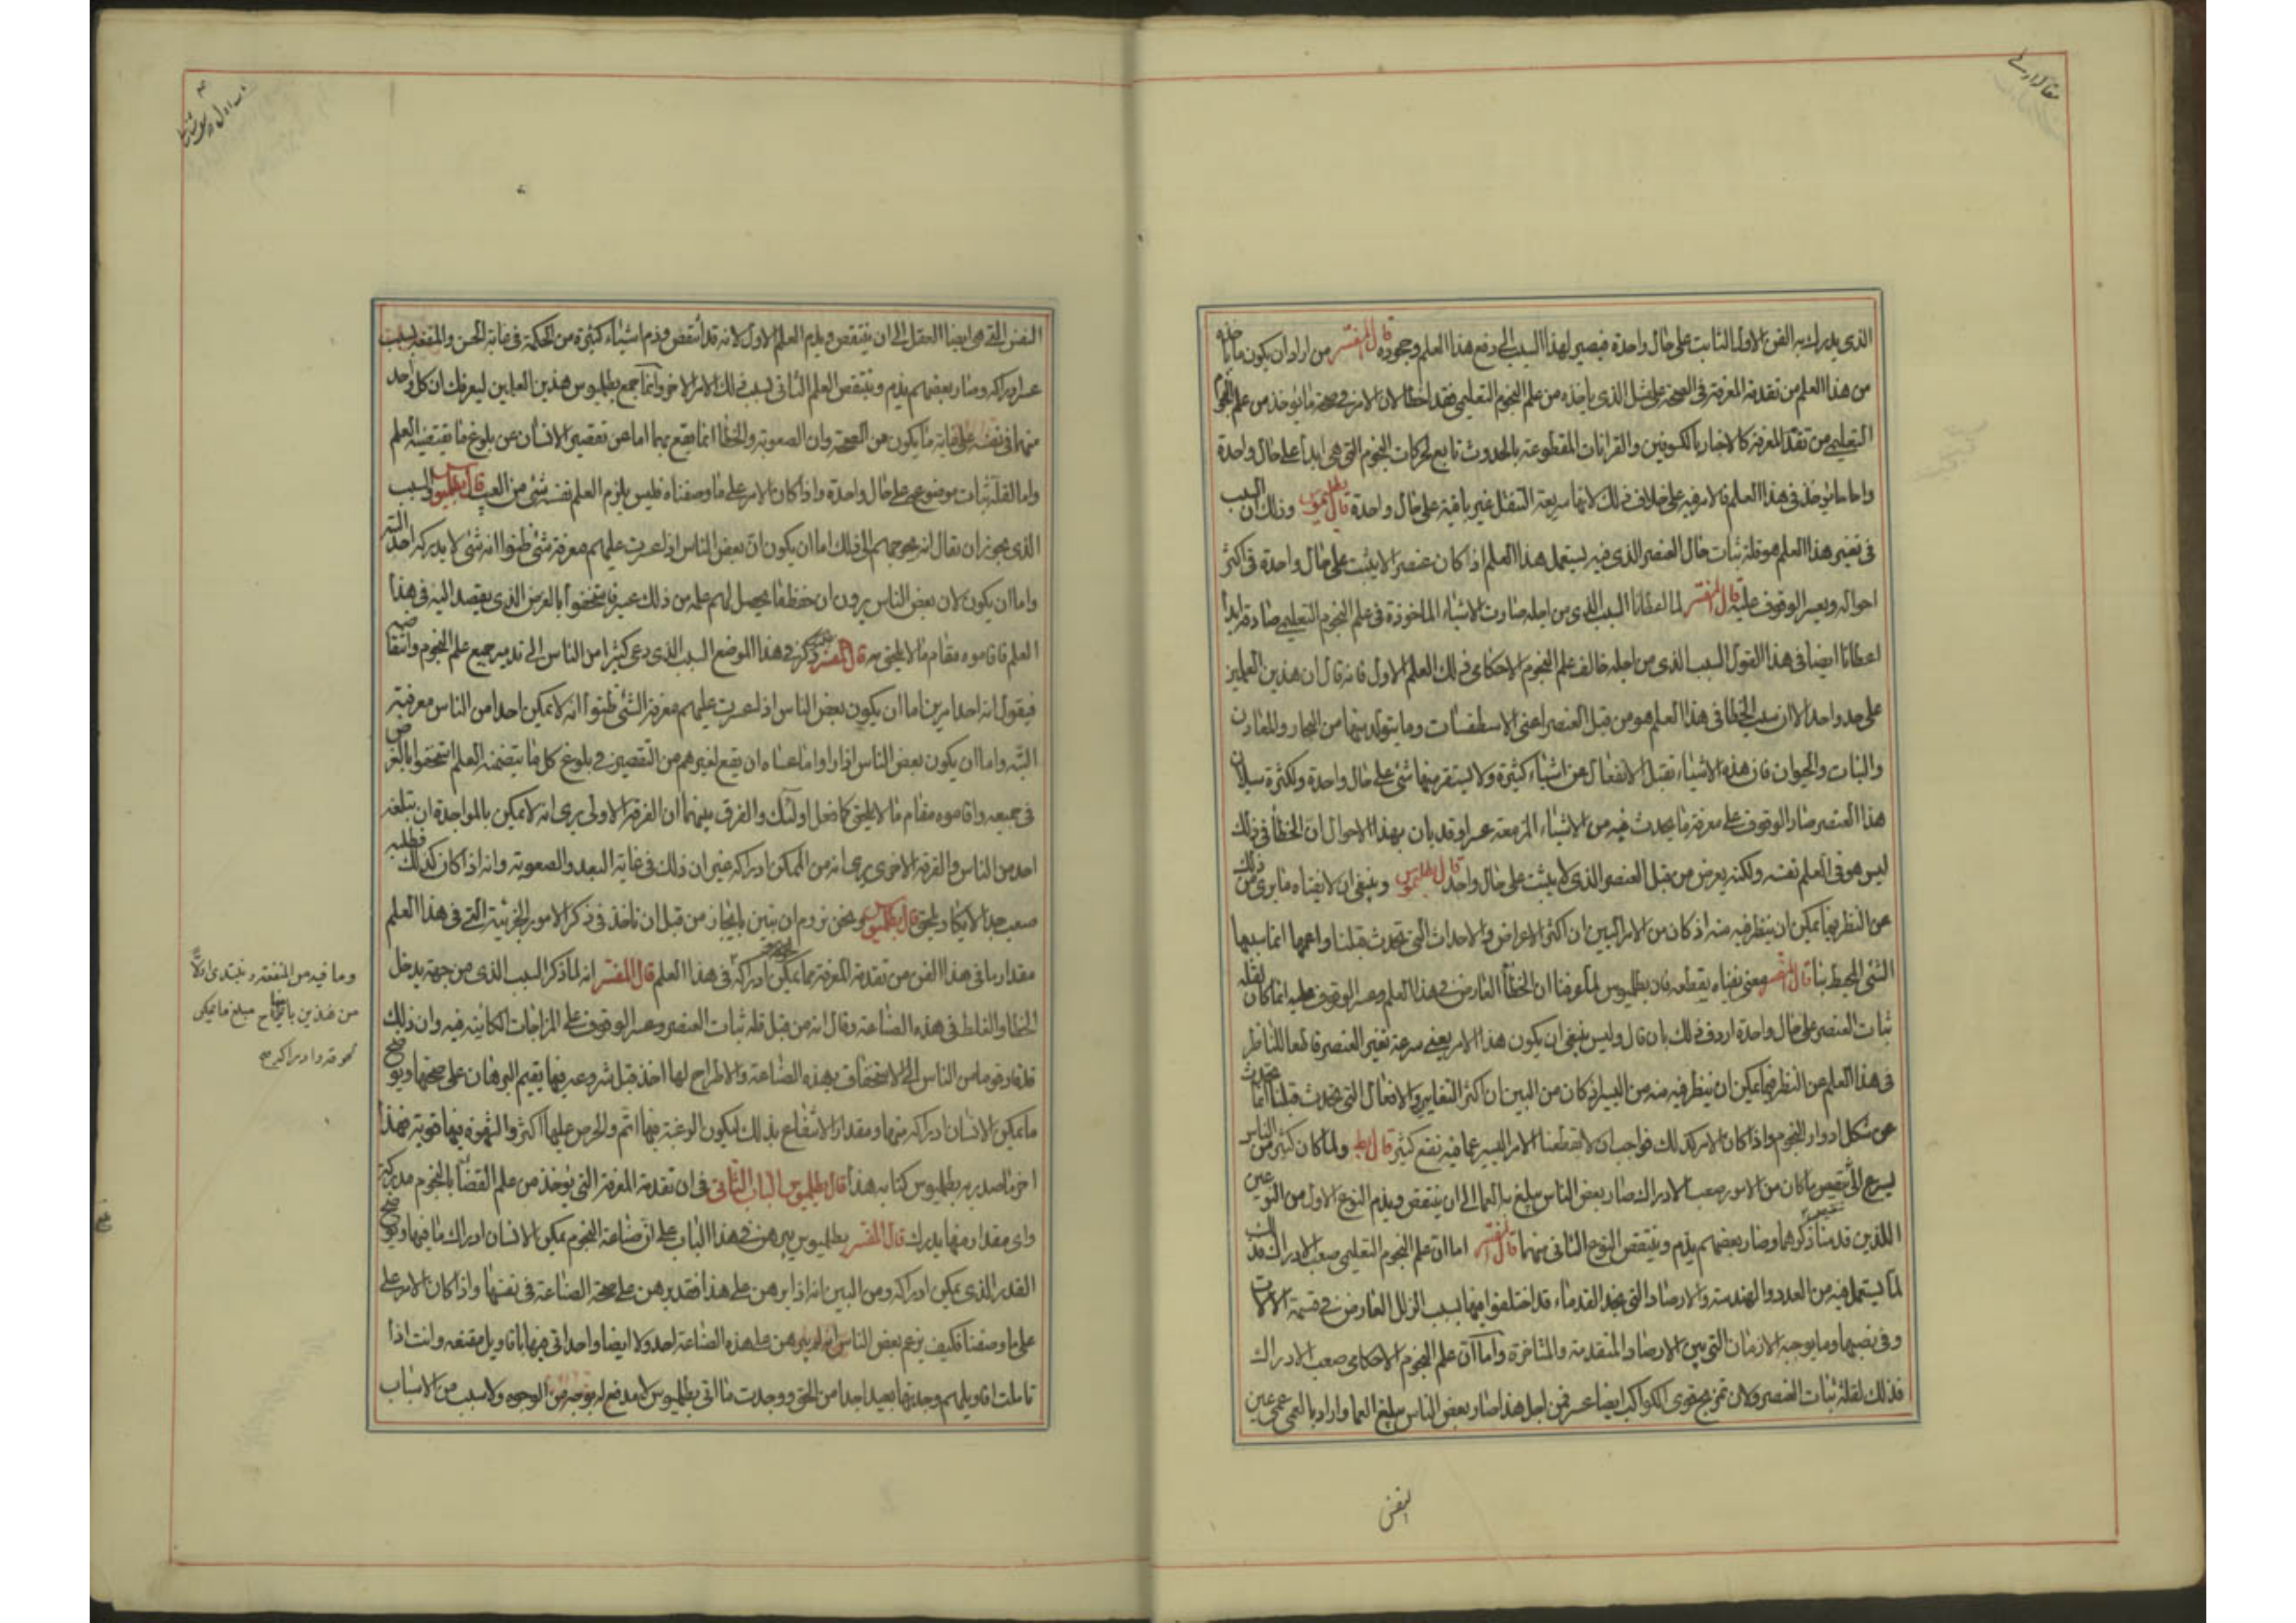 مقاله اول
الذى يدرك به الفن الاول الثابت على حال واحدة فيصير لهذا السبب الى دفع هذا العلم وجحوده قال المفسر من اراد ان يكون ما ياخذه
من هذا العلم من تقدمة المعرفة فى الصحة على مثل الذى ياخذه من علم النجوم التعليمى فقد اخطا لان الامر فى صحة ما يؤخذ من علم النجوم
التعليمى من تقدمة المعرفة كالاخبار بالكسوفين والقرانات المقطوعة بالحدوث تابع لحركات النجوم التى هى ابدا على حال واحدة
واما ما يؤخذ فى هذا العلم فالامر فيه على خلاف ذلك لانها سريعة التنقل غير باقية على حال واحدة قال بطلميوس وذلك ان السبب
فى تغير هذا العلم هو قلة ثبات حال العنصر الذى فيه يستعمل هذا العلم اذا كان عنصرا لا يثبت على حال واحدة فى اكثر
احواله ويعسر الوقوف عليه قال المفسر لما اعطانا السبب الذى من اجله صارت الاشياء الماخوذة فى علم النجوم التعليمى صادقة ابدا
اعطانا ايضا فى هذا القول السبب الذى من اجله خالف علم النجوم الاحكامى ذلك العلم الاول فانه قال ان هذين العلمين
على حد واحد الا ان سبب الخطا فى هذا العلم هو من قبل العنصر اعنى الاسطقسات وما يتولد بينها من البحار والمعادن
والنبات والحيوان فان هذه الاشياء تقبل الانفعال عن اشياء كثيرة ولا يستقر منها شئ على حال واحدة ولكثرة سيلان
هذا العنصر صار الوقوف على معرفة ما يحدث فيه من الاشياء المزمعة عسرا وقد بان بهذا الاحوال ان الخطا فى ذلك
ليس هو فى العلم نفسه ولكنه يعرض من قبل العنصر الذى لا يثبت على حال واحد قال بطلميوس وينبغى ان لا يفتاه ما يرى من ذلك
عن النظر فيما يمكن ان ينظر فيه منه اذ كان من الامر البين ان اكثر الاعراض والاحداث التى تحدث قبلنا واعمها انما سببها
الشئ المحيط بنا قال المفسر معنى يفتاه يقطعه فان بطلميوس لما عرفنا ان الخطا العارض فى هذا العلم وعسر الوقوف عليه انما كان لقلة
ثبات العنصر على حال واحدة اردف ذلك بان قال وليس ينبغى ان يكون هذا الامر يعنى سرعة تغير العنصر قاطعا للناظر
فى هذا العلم من النظر فيما يمكن ان ينظر فيه منه من اليسير اذ كان من البين ان اكثر التغايير والافعال التى تحدث قبلنا انما تحدث
عن شكل ادوار النجوم واذا كان الامر كذلك فواجب ان لا تقطعنا الامر اليسير عما فيه نفع كثير قال بط ولما كان كثير من الناس
يسرع الى تنقيص ما كان من الامور صعب الادراك صار بعض الناس يبلغ به العما الى ان ينتقص ويذم النوع الاول من النوعين
اللذين قدمنا ذكرهما وصار بعضهم يذم وينتقص النوع الثانى منهما قال المفسر اما ان علم النجوم التعليمى صعب الادراك فذلك
لما يستعمل فيه من العدد والهندسة والارصاد التى نجد القدماء قد اختلفوا فيها بسبب الزلل العارض فى قسمة الالات
وفى نصبها وما يوجبه الازمان التى بين الارصاد المتقدمة والمتاخرة واما ان علم النجوم الاحكامى صعب الادراك
فذلك لقلة ثبات العنصر ولان تمزيج قوى الكواكب ايضا عسر فمن اجل هذا صار بعض الناس يبلغ العما واراد بالعمى عمى عين
النفس
النفس التى هى ايضا العقل الى ان ينتقص ويذم العلم الاول لانه قد انتقص وذم اشياء كثيرة من الحكمة فى غاية الحسن والمنفعة بسبب
عسر ادراكه وصار بعضهم يذم وينتقص العلم الثانى بسبب ذلك الامر الاخر وانما جمع بطلميوس هذين العلمين ليعرفك ان كل واحد
منهما فى نفسه على غاية ما يكون من الصحة وان الصعوبة والخطا انما يقع بهما اما عن تقصير الانسان عن بلوغ ما يقتضيه العلم
واما لقلة ثبات موضوعه على حال واحدة واذا كان الامر على ما وصفناه فليس يلزم العلم نفسه شئ من العيب قال بطلميوس والسبب
الذى يجوز ان يقال انه يحوجهم الى ذلك اما ان يكون ان بعض الناس اذا عسرت عليهم معرفة شئ ظنوا انه شئ لا يدركه احد البتة
واما ان يكون لان بعض الناس يرون ان حفظ ما يحصل لهم علمه من ذلك عسر فاستخفوا بالغرض الذى يقصد اليه فى هذا
العلم فاقاموه مقام ما لا يلحق قال المفسر ذكر فى هذا الموضع السبب الذى دعى كثيرا من الناس الى جميع علم النجوم وانتقاصه
فيقول انه احد امرين اما ان يكون بعض الناس اذا عسرت عليهم معرفة الشئ ظنوا انه لا يمكن احدا من الناس معرفته
البتة واما ان يكون بعض الناس اذا راوا ما عساه ان يقع لغيرهم من التقصير فى بلوغ كل ما يتضمنه العلم استخفوا بالغرض
فى جميعه واقاموه مقام ما لا يلحق كما فعل اولئك والفرق بينهما ان الفرقة الاولى يرى انه لا يمكن بالواحدة ان يبلغه
احد من الناس والفرقة الاخرى يرى انه من الممكن ادراكه غير ان ذلك فى غاية البعد والصعوبة وانه اذا كان كذلك فطلبه
صعب جدا لا يكاد يلحق قال بطلميوس ونحن نروم ان نبين بايجاز من قبل ان ناخذ فى ذكر الامور الجزئية التى فى هذا العلم
مقدار ما فى هذا الفن من تقدمة المعرفة مما يمكن ادراكه فى هذا العلم قال المفسر انه لما ذكر السبب الذى من جهته يدخل
الخطا والغلط فى هذه الصناعة وقال انه من قبل قلة ثبات العنصر وعسر الوقوف على المزاجات الكائنة فيه وان ذلك
قد قاد قوما من الناس الى الاستخفاف بهذه الصناعة والاطراح لها اخذ قبل شروعه فيها يقيم البرهان على صحتها ويوضح
ما يمكن الانسان ادراكه منها ومقدار الانتفاع بذلك ليكون الرغبة فيها اتم والحرص عليها اكثر والشهوة فيها قوية فهذا
اخر ما صدر به بطلميوس كتابه هذا قال بطلميوس الباب الثانى فى ان تقدمة المعرفة التى يؤخذ من علم القضا بالنجوم مدركة
واى مقدار منها يدرك قال المفسر بطلميوس يبرهن فى هذا الباب على ان صناعة النجوم يمكن الانسان ادراك ما فيها ويوضح
القدر الذى يمكن ادراكه ومن البين انه اذا برهن على هذا فقد برهن على صحة الصناعة فى نفسها واذا كان الامر على
على ما وصفنا فكيف يزعم بعض الناس انه لم يبرهن على هذه الصناعة احد ولا ايضا واحد اتى فيها باقاويل مقنعة وانت اذا
تاملت اقاويلهم وجدتها بعيدا جدا من الحق ووجدت ما اتى بطلميوس لا مدفع له بوجه من الوجوه ولا بسبب من الاسباب
وما فيه من المنفعة ونبتدى اولا
من هذين بايضاح مبلغ ما يمكن
معرفته وادراكه